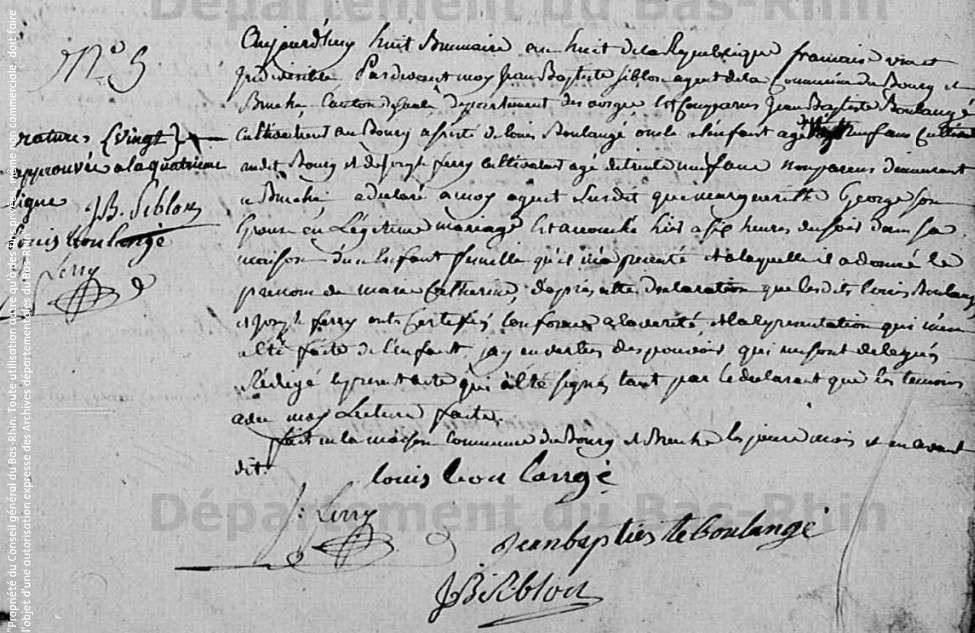 Département du Bas-Rhin
N.° 5
Aujourdhuy huit Brumaire an huit de la Republique francaise une et
indivisible Pardevant moy Jean Baptiste Siblon agent de la Commune de Bourg et
Bruche Canton de departement des vosges Est Comparus Jean Baptiste Boulangé
Cultivateur au Bourg assisté de louis Boulangé oncle a l'enfant agé neuf ans Cultivateur
audit Bourg et de Joseph ferry Cultivateur agé de trente neuf ans non parens demeurant
a Bruche a declaré a moy agent susdit que marguerite George son
Epouse en Légitime mariage Est accouché hier a six heures du soir dans sa
maison d'un Enfant femelle qu'il m'a presenté et a laquelle il a donné le
prenom de marie Catherine, d'apres cette declaration que lesdits louis Boulangé
et Joseph ferry ont Certifiés Conforme a la verité et la representation qui m'en
a été faite de l'enfant j'ay en vertu des pouvoirs qui me sont delegués
Redigé le present acte qui a été signés tant par le declarant que les temoins
avec moy Lecture faite.
fait en la maison Commune du Bourg et Bruche les jour mois et an avant
dit.
ratures (vingt)
approuvée a la quatrieme
ligne
J B. Siblon
louis boulangé
ferry
louis bou langé
J: ferry
Jeanbaptieste boulangé
JB Siblon
Département du Bas-Rhin
"Propriété du Conseil général du Bas-Rhin. Toute utilisation autre qu'à des fins privées, même non commerciale, doit faire
l'objet d'une autorisation expresse des Archives départementales du Bas-Rhin